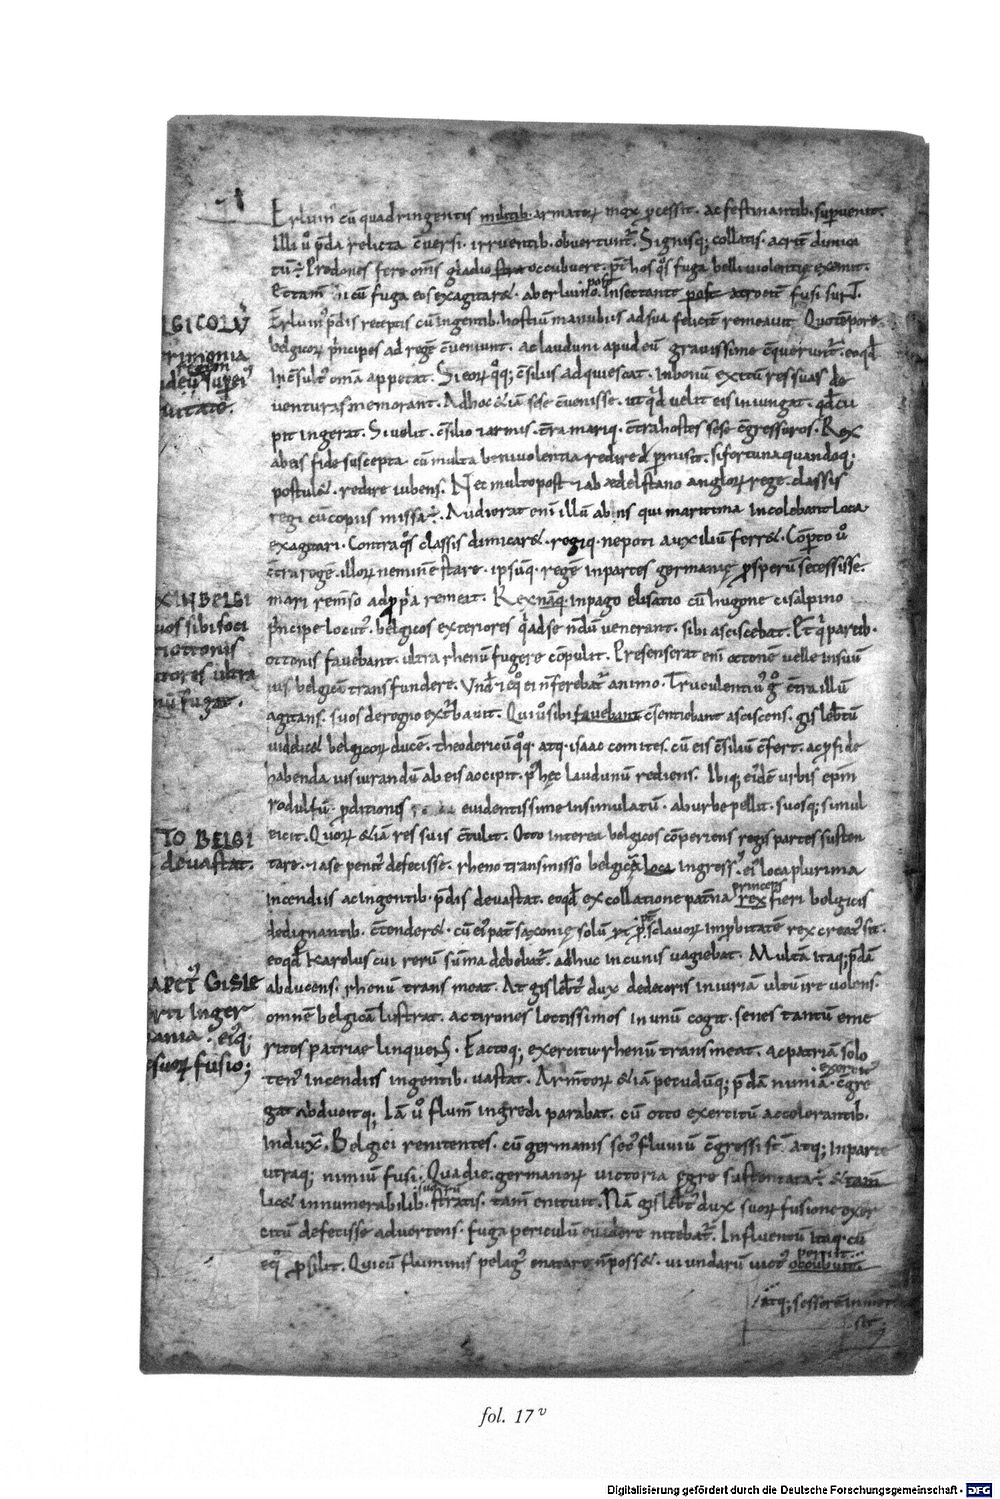 Erluin' cū quadringentis multib. armatoꝝ mox ꝓcessit. ac festinantib. supuenit.
Illi ů p̄da relicta c̄uersi. irruentib. obuertunt'. Signisq; collatis. acrit dimica
tū. Prędones fere om̄s gladio fere occubuere. p̄t hos qͦs fuga belli uiolentię exemit.
cū fuga eos exagitaret. ab erluino. post Insectante post atrociter fusi sunt.
Erluin' p̄dis receptis cū ingentib. hostiū manubiis ad sua feliciter remeauit. Quo tēpore.
LGICOLŪ
rimonia
regem
uitate.
belgicoꝝ p̄ncipes ad regē c̄ueniunt. ac lauduni apud eū grauissime c̄queruntur. eo qd̄
inc̄sulte omnia appetat. Si eoꝝ qͦq; c̄siliis adquiescat. In bonū exitū res suas de
uenturas memorant. Ad hoc &iā sese c̄uenisse. ut qͥd uelit eis iniungat. qd̄ cu
pit ingerat. Si uelit. c̄silio & armis. t̄ra mariq. c̄tra hostes sese c̄gressuros. Rex
ab eis fide suscepta cū multa beniuolentia redire p̄misit. si fortuna quandoq.
postulet. redire iubens. Nec multo post & ab ædelstano angloꝝ rege. classis
regi cū copiis missa. Audierat enī illū ab iis qui maritima incolebant loca
exagitari. Contra qͦs classis dimicaret. regiq. nepoti auxiliū ferret. Cōperto ů
c̄tra regē. illoꝝ neminē stare. ipsūq. regē in partes germanię ꝓsperū secessisse.
mari remenso ad ꝓpria remeat. Rex nāq. in pago elisatio cū hugone cisalpino
XIN BELGI
uos sibi soci
ottonis
tores ultra
nū fugat.
p̄ncipe locut'. belgicos exteriores qͥ ad se ndū uenerant. sibi asciscebat. P̄t qͥ partib.
ottonis fauebant. ultra rhenū fugere cōpulit. Presenserat enī ottonē uelle in suū
ius belgicā transfundere. Vnde & eqͦ ei n̄ ferebat' animo. Truculentius gͦ c̄tra illū
agitans. suos de regno exturbauit. Qui ů sibi fauebant c̄sentiebant asciscens. gislebtū
uidelicet belgicoꝝ ducē. theodericū qͦq. atq. isaac comites. cū eis c̄siliū c̄fert. ac ꝓ fide
habenda iusiurandū ab eis accipit. p̄ hęc laudunū rediens. Ibiq; eidē urbis epm̄
rodulfū. ꝓditionis euidentissime insimulatū. ab urbe pellit. suosq; simul
eicit. Quoꝝ &iā res suis c̄tulit. Otto interea belgicos cōperiens regis partes susten
TO BELGI
deuastat.
tare. & a se penitus defecisse. rheno transmisso belgicā loca ingress'. ei' loca plurima
incendiis ac ingentib. p̄dis deuastat. eo qd̄ ex collatione patna princeps rex fieri belgicis
dedignantib. c̄tenderet. cū ei' pater saxonię solū & ꝓpter sclauoꝝ improbitatē rex creatus sit.
eo qd̄ Karolus cui rerū sūma debebat'. adhuc in cunis uagiebat. Multā itaq; p̄dā
abducens. rhenū transmeat. At gislebt' dux dedecoris iniuriā ultū ire uolens.
GISLE
rti In ger
ania. eiq;
suoꝝ fusio;
omnē belgicā lustrat. ac tirones lectissimos in unū cogit. senes tantū eme
ritos patriae linquens. Factoq; exercitu rhenū transmeat. ac patriā solo
ten' incendiis ingentib. uastat. Armtoꝝ &iā pecudūq; p̄dā nimiā. exercit' c̄gre
gat abducitq; Iā ů flumen ingredi parabat. cū otto exercitū accelerantib.
Induxit. Belgici renitentes. cū germanis secus fluuiū c̄gressi st̄. atq; in parte
utraq; nimiū fusi. Qua die. germanoꝝ uictoria egre sustentata. & tam
licet innumerabilib. suorū stratis. tam̄ enituit. Nā gislebt' dux suoꝝ fusione exer
citū defecisse aduertens. fuga periculū euadere nitebat'. In fluentū itaq. cū
eqͦ ꝓsilit. Qui cū fluminis pelagus enatare n̄ posset. ui undarū uict' periit occubuit.
atq; sessorē inmer
sit.
fol. 17v
Digitalisierung gefördert durch die Deutsche Forschungsgemeinschaft - DFG